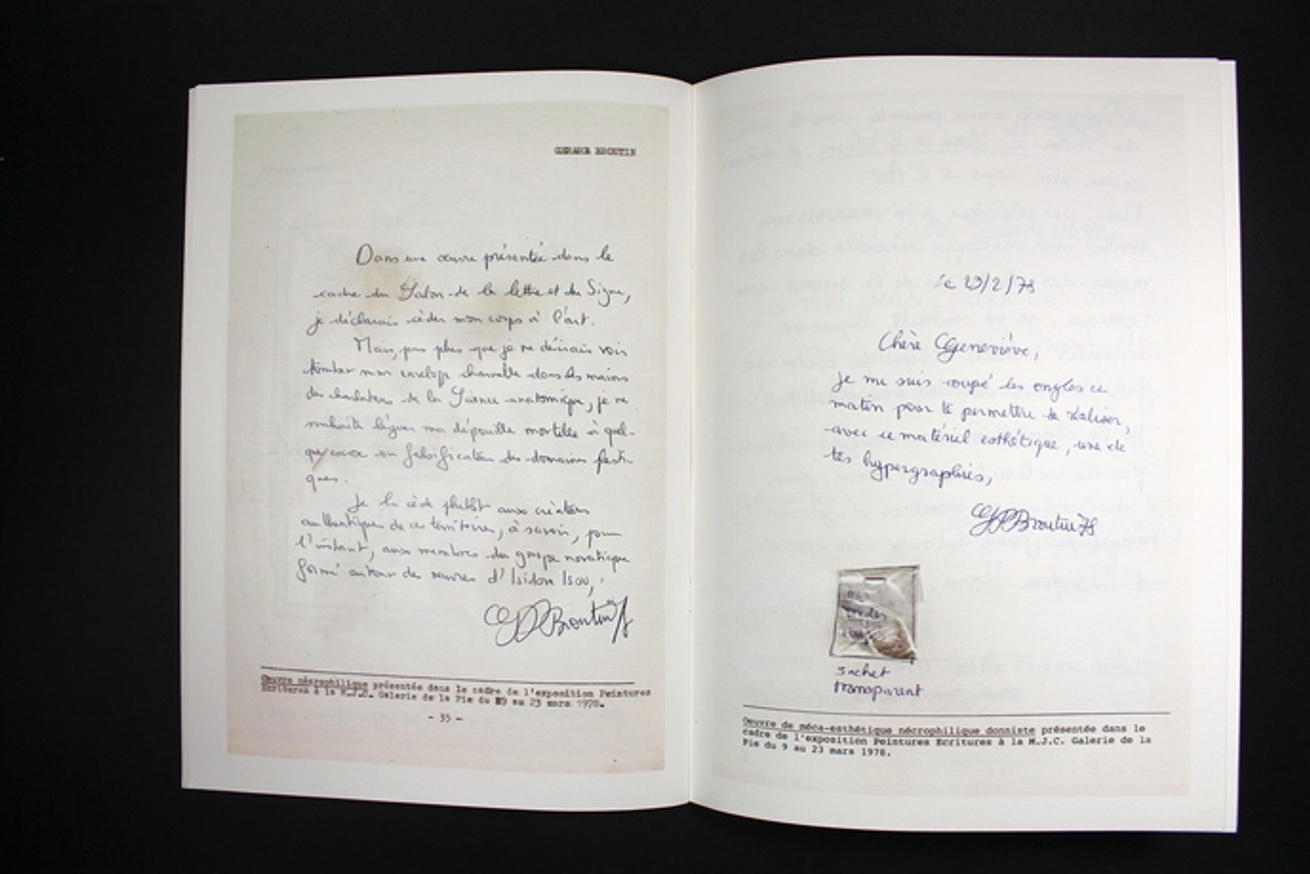 GERARD BROUTIN
Dans une œuvre présentée dans le
cadre du Salon de la lettre et du Signe,
je déclarais céder mon corps à l'art.
Mais, pas plus que je ne désirais voir
tomber mon enveloppe charnelle dans les mains
des charlatans de la Science anatomique, je ne
souhaite léguer ma dépouille mortelle à quel-
que falsificateur des domaines
Je la cède plutôt aux créateurs
authentiques de ces territoires, à savoir, pour
l'instant, aux membres du groupe novatique
formé autour des œuvres d'Isidore Isou,
GP Broutin
Œuvre nécrophilique présentée dans le cadre de l'exposition Peintures
Ecritures à la M.J.C. Galerie de la Pie du 9 au 23 mars 1978.
- 35 -
le 23/2/78
Chère Geneviève,
je me suis coupé les ongles ce
matin pour te permettre de réaliser,
avec ce matériel esthétique, une de
tes hypergraphies,
GP Broutin 78
sachet
transparent
Oeuvre de méca-esthétique nécrophilique donniste présentée dans le
cadre de l'exposition Peintures Ecritures à la M.J.C. Galerie de la
Pie du 9 au 23 mars 1978.